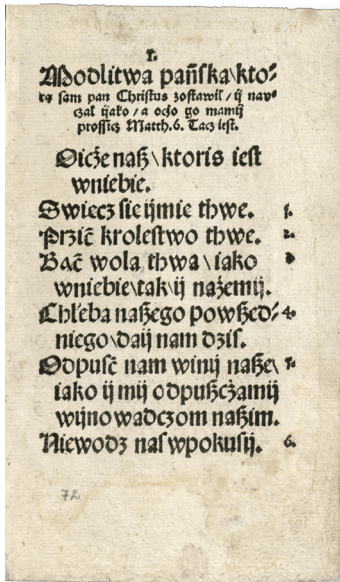 1.
Modlitwa pańska\kto⸗
rą sam pan Christus zostawil/ij nau⸗
czal ijako/a oczo go mamij
prossicz Matth.6. Tacz iest.
Oicże naß\ktoris iest
wniebie.
Swiecz sie ijmie thwe. 1.
Przić krolestwo thwe. 2.
Bać wola thwa\iako
wniebie\tak\ij nażemij.
Chleba naßego powßed⸗ 4.
niego\daij nam dzis.
Odpusć nam winij naße\ 5.
iako ij mij odpußcżamij
wijnowadczom naßim.
Niewodz nas wpokusij. 6.
72